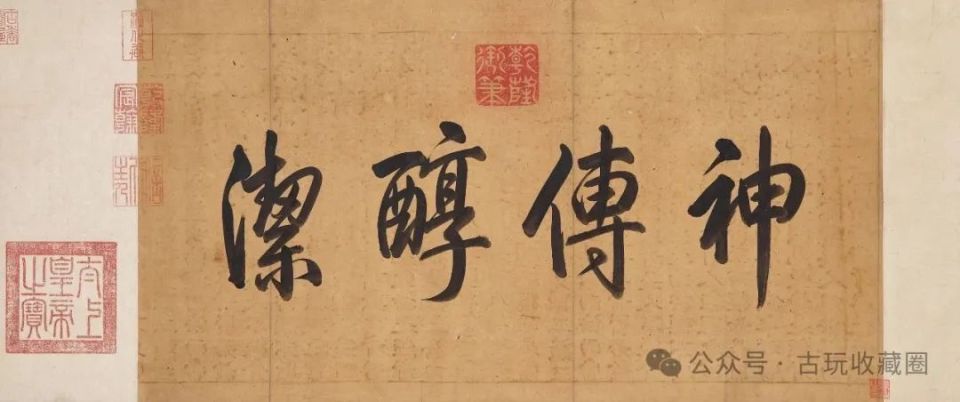 神傳醇潔
乾隆御筆
太上皇帝之寶
公众号·古玩收藏圈